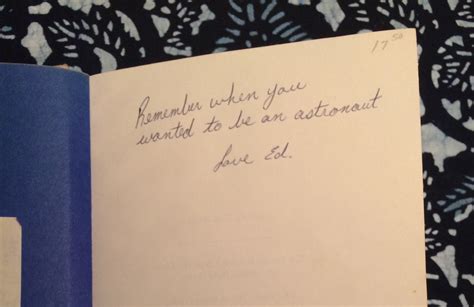 17.50
Remember when you
wanted to be an astronaut
Love Ed.